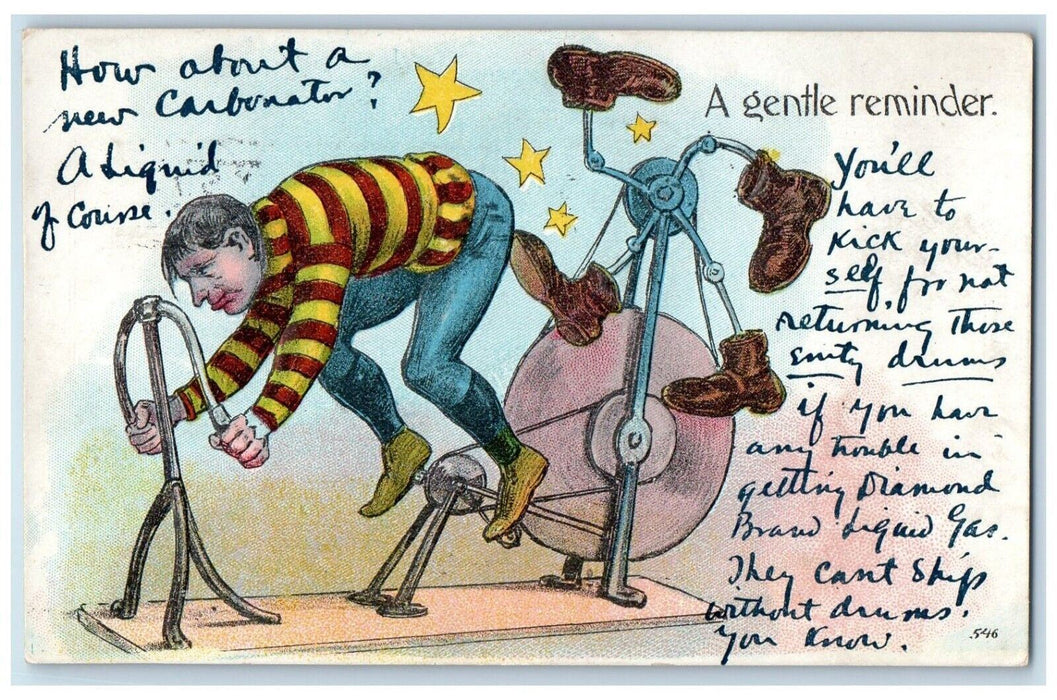 How about a
new Carbonator?
A Liquid
of course.
A gentle reminder.
You'll
have to
kick your-
self, for not
returning those
emty drums
if you have
any trouble in
getting Diamond
Brand Liquid Gas.
They cant ship
without drums.
You know.
546